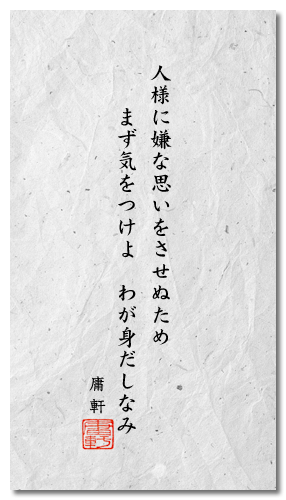 人様に嫌な思いをさせぬため
まず気をつけよ　わが身だしなみ
庸軒